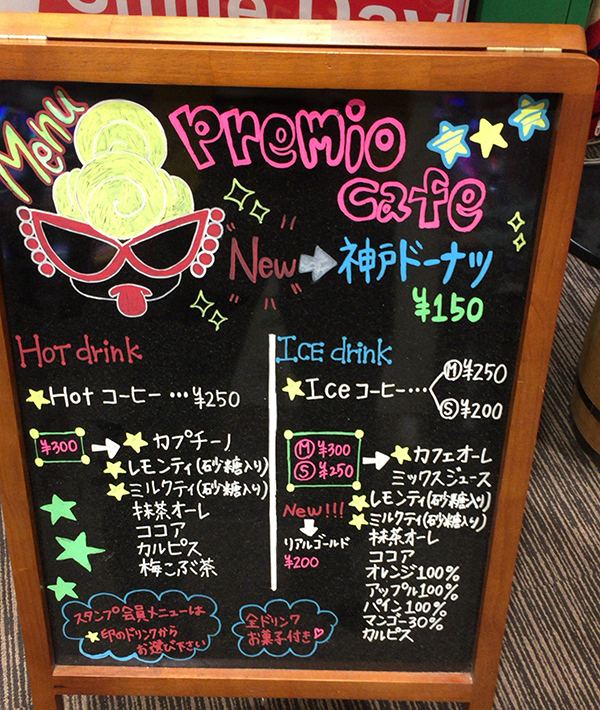 Menu
Premio
cafe
New → 神戸ドーナツ
¥150
Hot drink
★Hot コーヒー…¥250
¥300 → ★カプチーノ
★レモンティ(砂糖入り)
★ミルクティ(砂糖入り)
抹茶オーレ
ココア
カルピス
梅こぶ茶
ICE drink
★Ice コーヒー… Ⓜ¥250
Ⓢ¥200
Ⓜ¥300
Ⓢ¥250 → ★カフェオーレ
ミックスジュース
★レモンティ(砂糖入り)
★ミルクティ(砂糖入り)
抹茶オーレ
ココア
オレンジ100%
アップル100%
パイン100%
マンゴー30%
カルピス
New!!!
↓
リアルゴールド
¥200
スタンプ会員メニューは
★印のドリンクから
お選び下さい
全ドリンク
お菓子付き♡